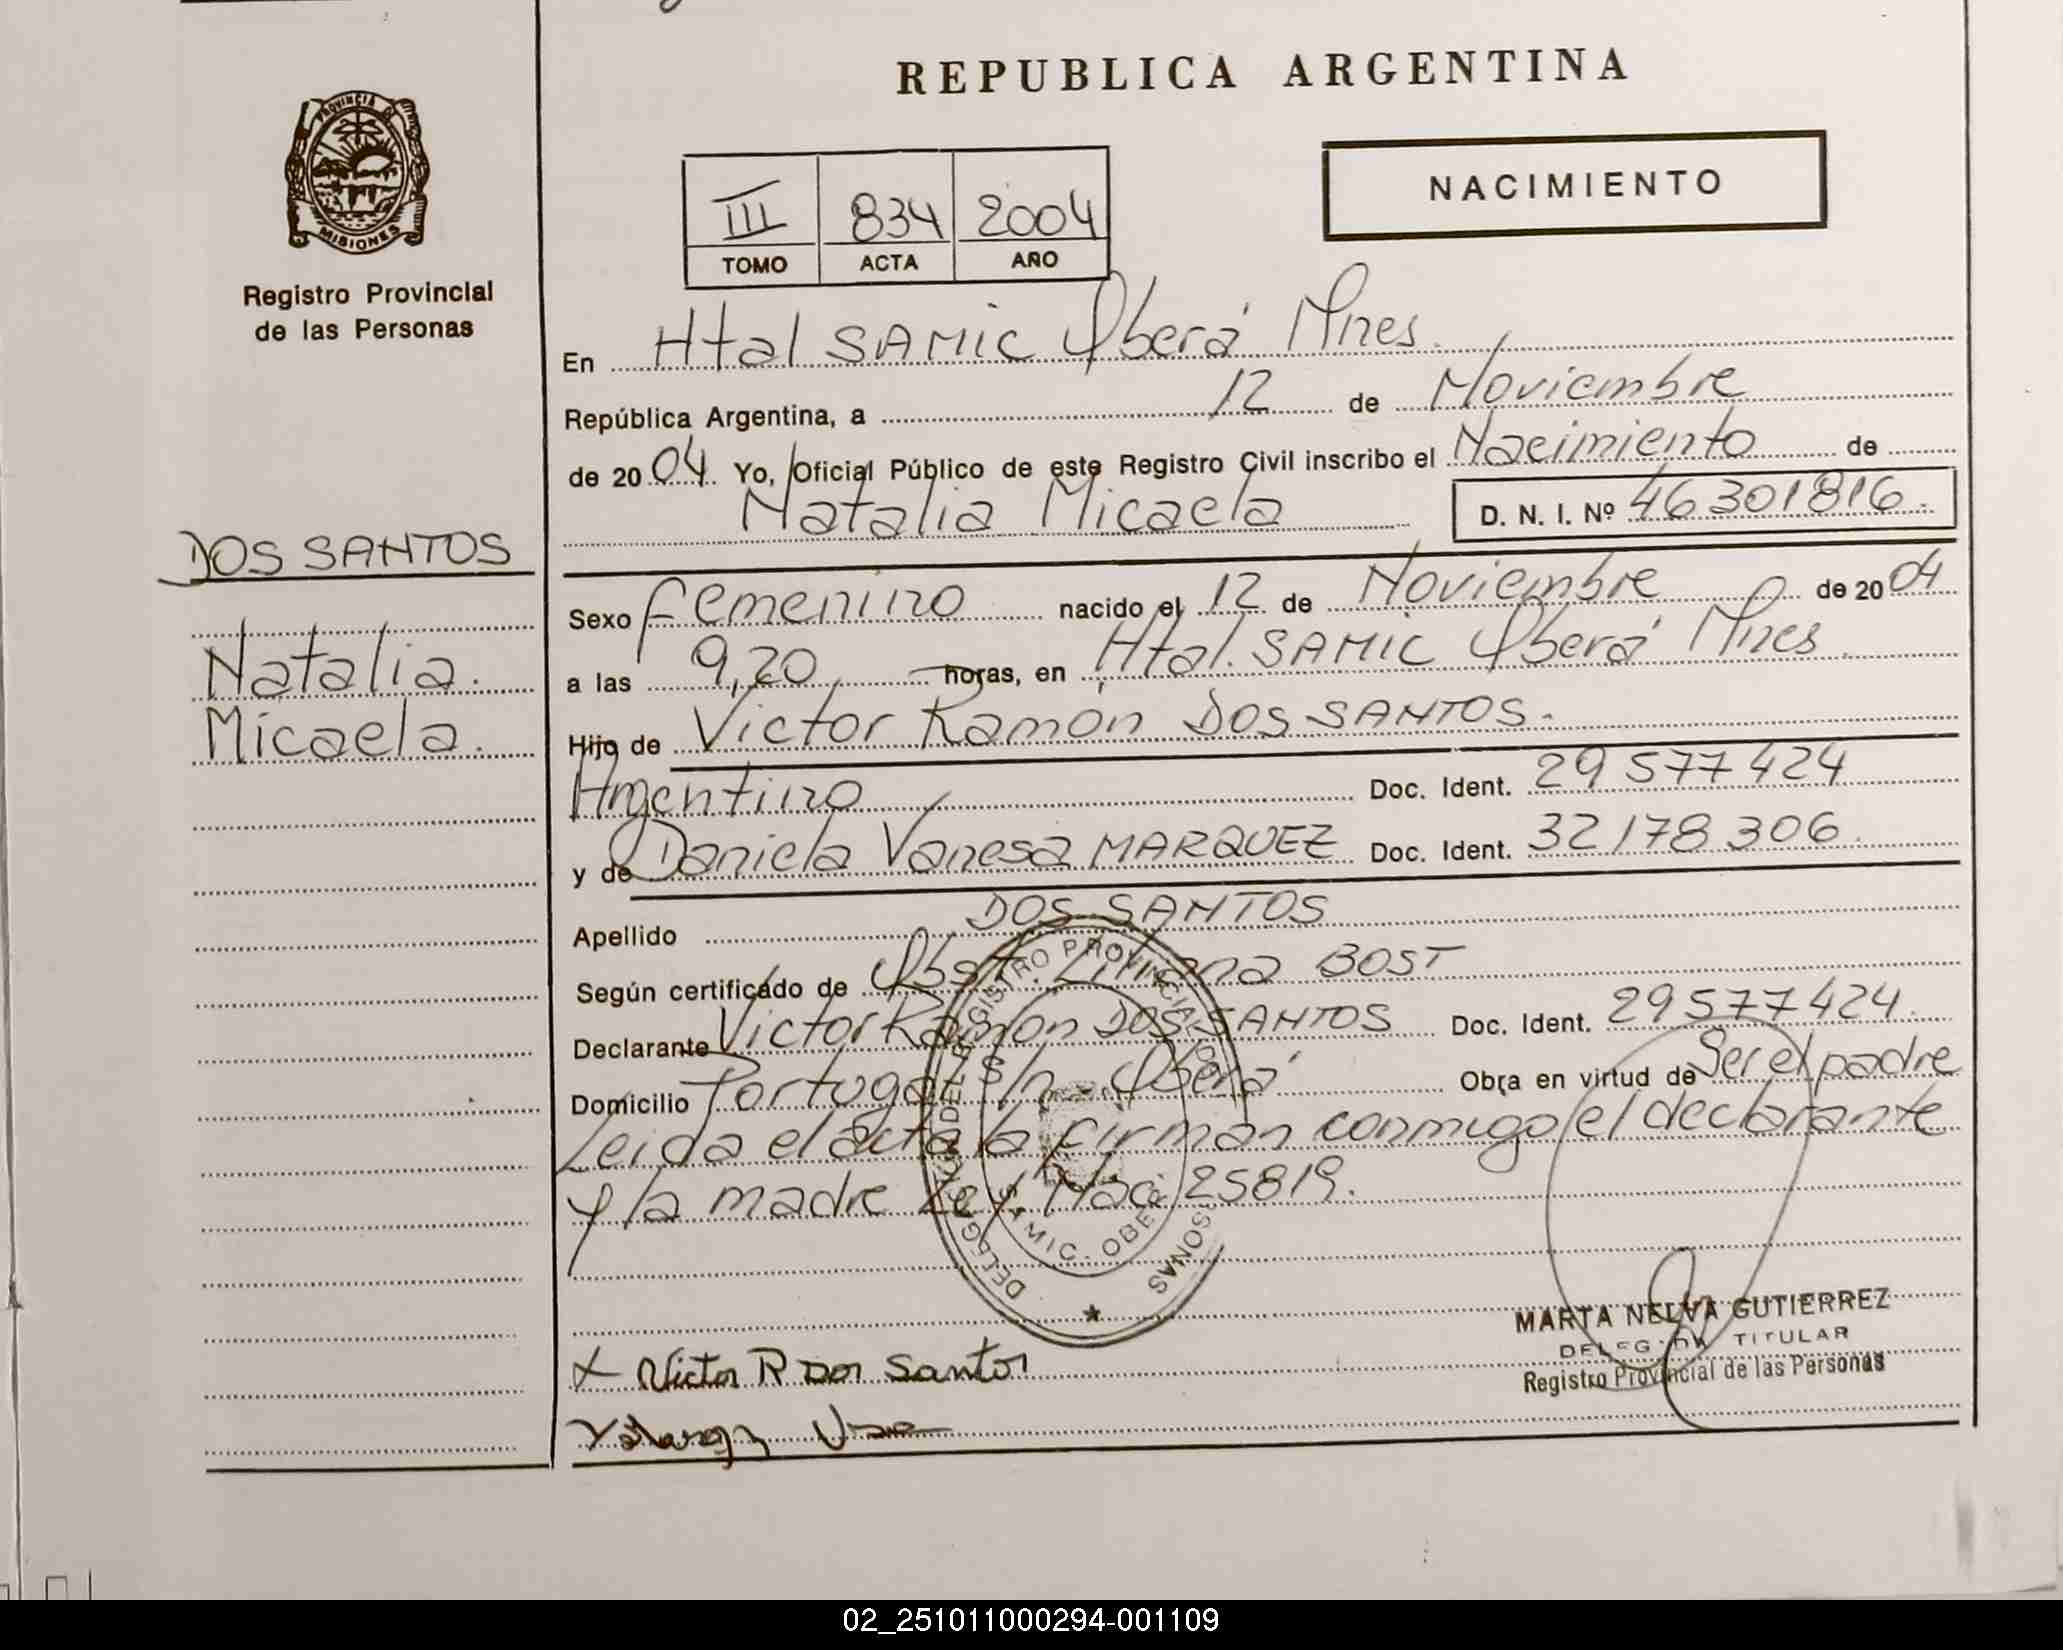 REPUBLICA ARGENTINA
PROVINCIA DE
MISIONES
Registro Provincial
de las Personas
NACIMIENTO
III 834 2004
TOMO ACTA AÑO
En Htal SAMIC Oberá Mnes.
República Argentina, a 12 de Noviembre
de 2004 Yo, Oficial Público de este Registro Civil inscribo el Nacimiento de
Natalia Micaela D. N. I. Nº 46301816.
DOS SANTOS
Natalia.
Micaela.
Sexo femenino nacido el 12 de Noviembre de 2004
a las 9,20 horas, en Htal. SAMIC Oberá Mnes.
Hijo de Victor Ramón DOS SANTOS.
Argentino Doc. Ident. 29577424
y de Daniela Vanesa MARQUEZ Doc. Ident. 32178306.
Apellido DOS SANTOS
Según certificado de Obst. Liliana BOST
Declarante Victor Ramón DOS SANTOS Doc. Ident. 29577424.
Domicilio Portugal S/n. Oberá Obra en virtud de Ser el padre
Leida el acta la firman conmigo el declarante
y la madre Ley Nac. 25819.
DELEGACION DEL REGISTRO PROVINCIAL DE PERSONAS
SAMIC - OBERA
X Victor R Dos Santos
MARTA NELVA GUTIERREZ
DELEGADA TITULAR
Registro Provincial de las Personas
02_251011000294-001109